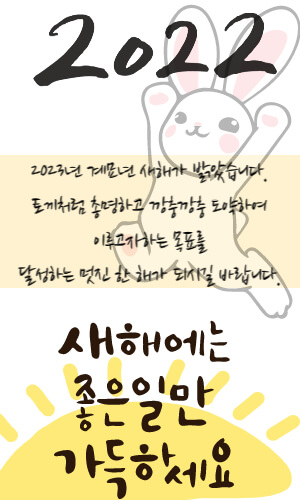 2022
2023년 계묘년 새해가 밝았습니다.
토끼처럼 총명하고 깡충깡충 도약하여
이루고자하는 목표를
달성하는 멋진 한 해가 되시길 바랍니다.
새해에는
좋은일만
가득하세요